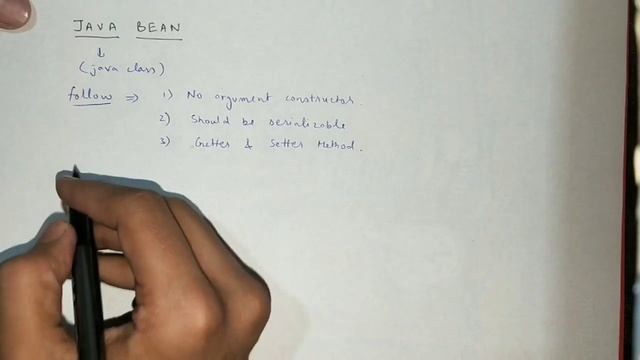 JAVA BEAN
↓
(java class)
follow ⇒ 1) No argument constructor.
2) Should be serializable
3) Getter & Setter Method.